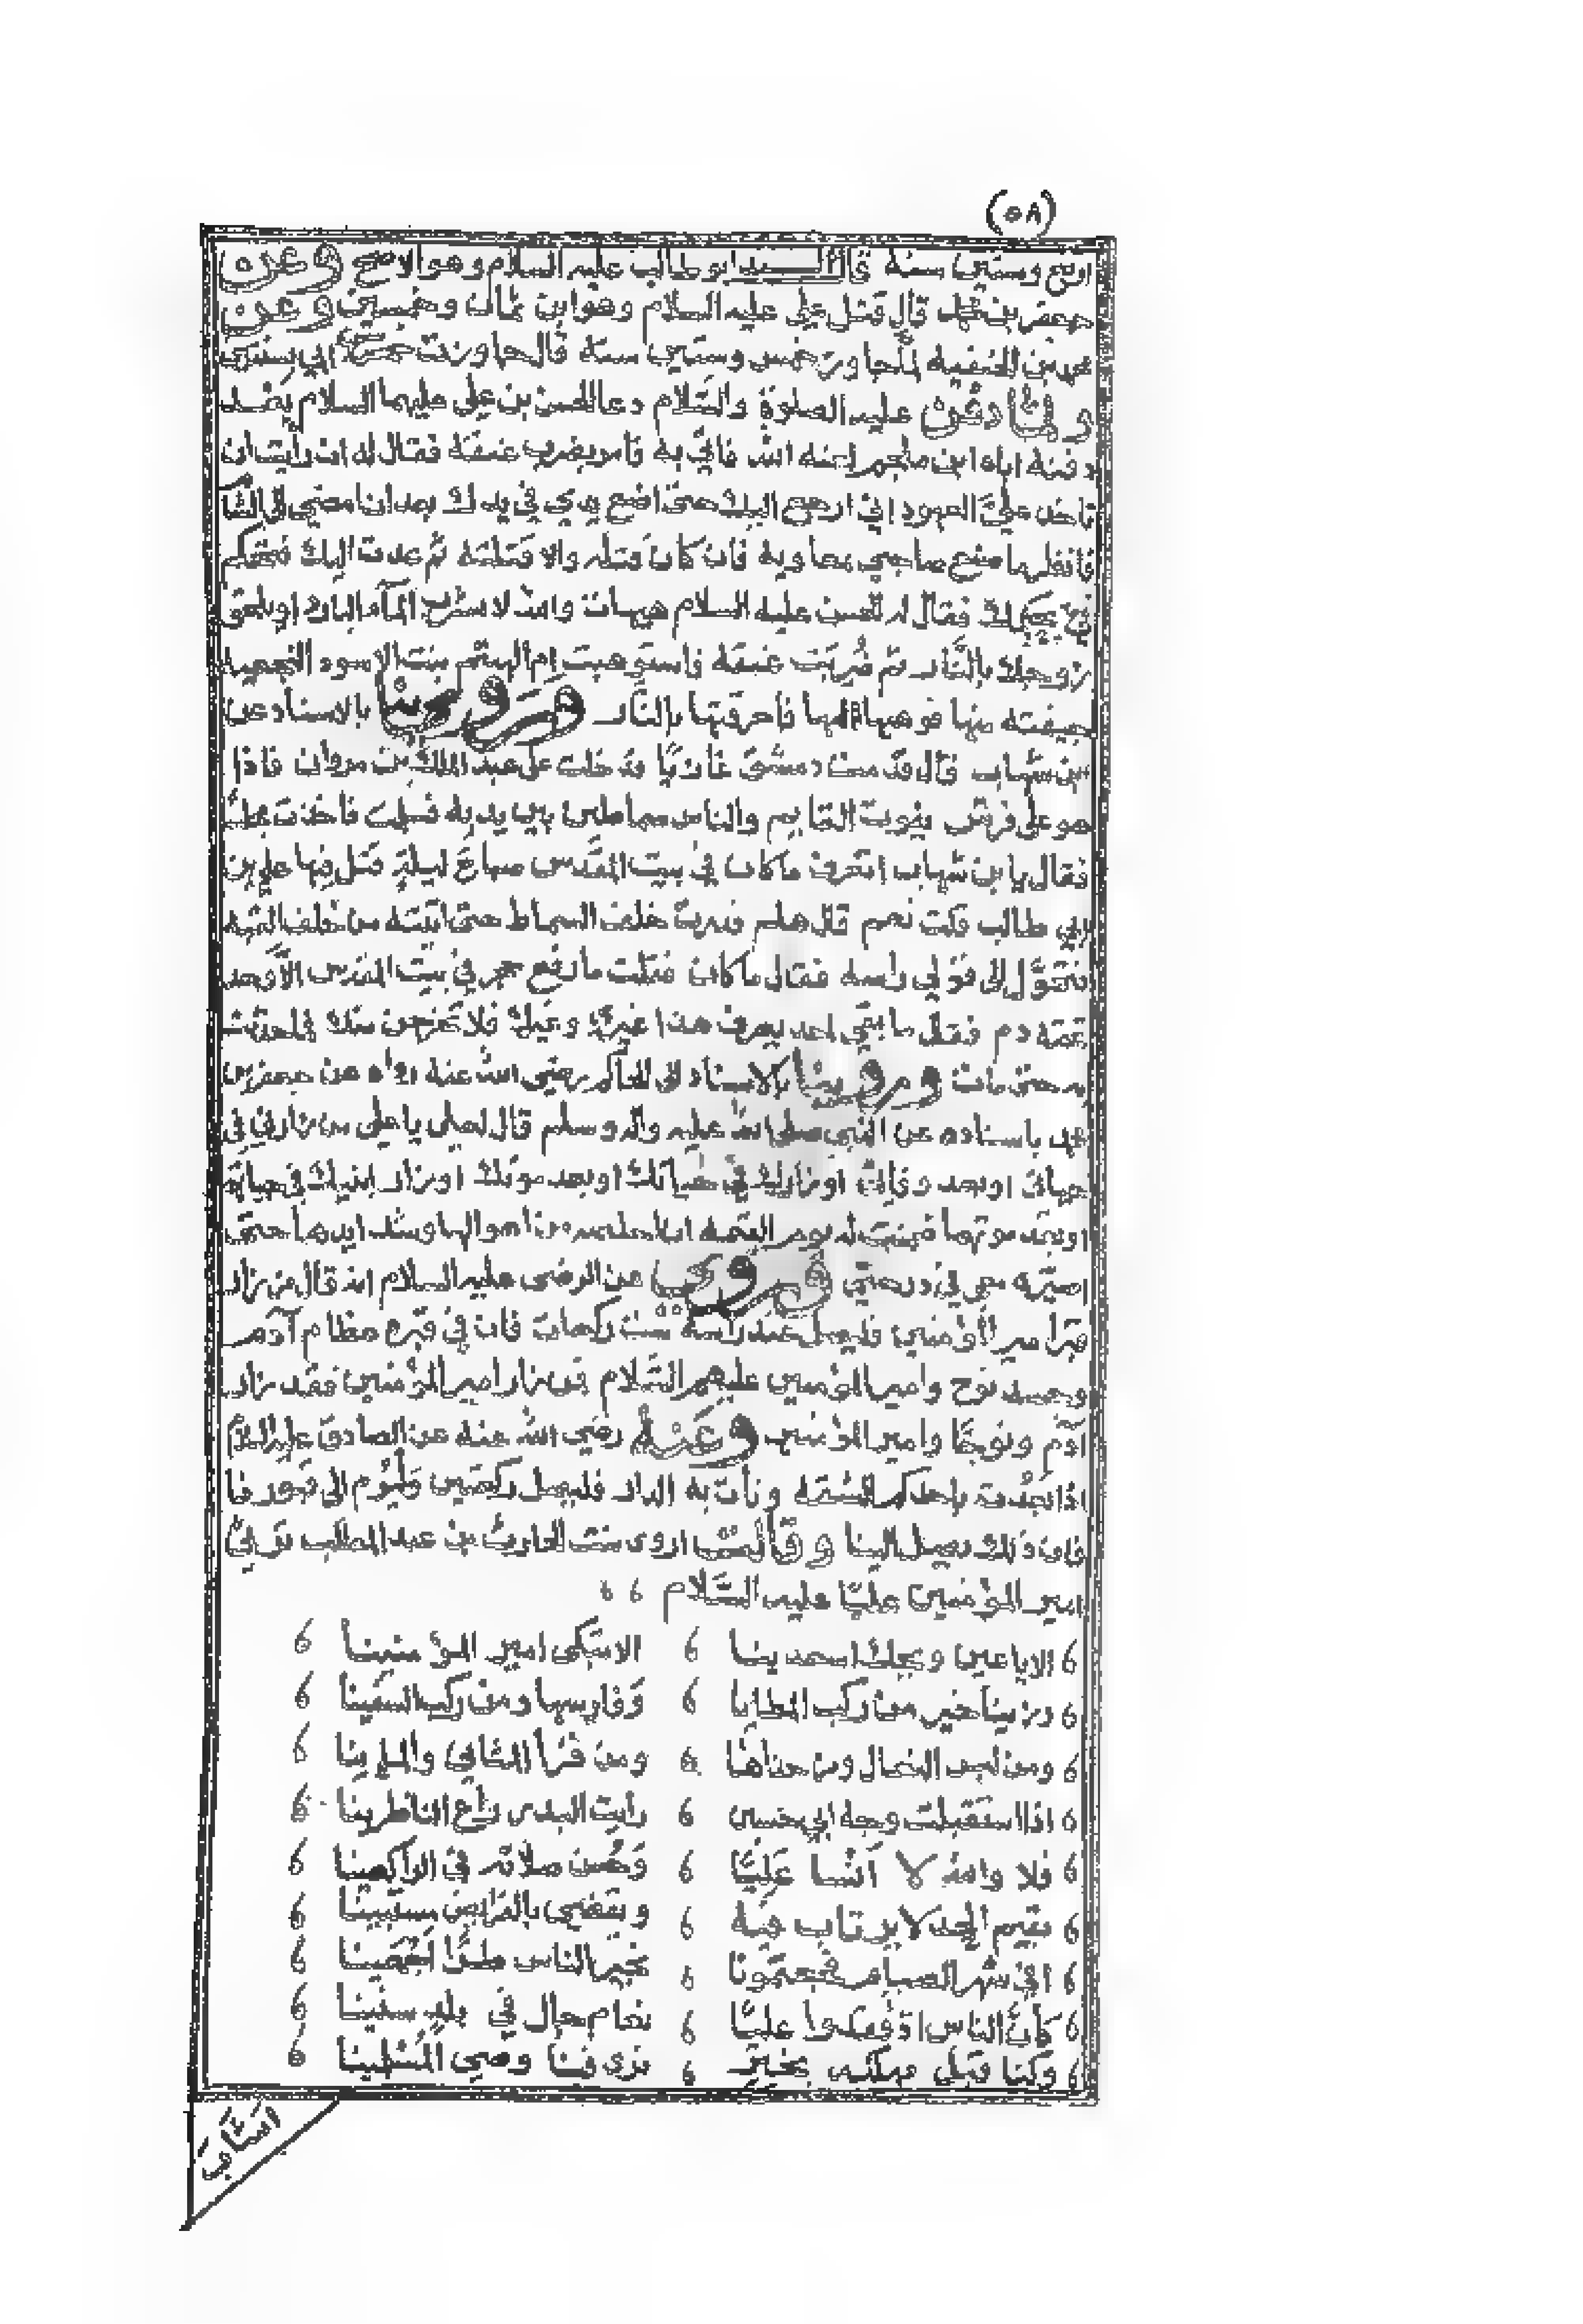 (٥٨)
اربع وستين سنة قال السيد ابو طالب عليه السلام وهو الاصح وعن
جعفر بن محمد قال قتل علي عليه السلام وهو ابن ثمان وخمسين وعن
محمد بن الحنفية لما جاوز خمس وستين سنة قال جاوزت سن ابي بسنتين
ولما دفن عليه الصلوة والسلام دعا الحسن بن علي عليهما السلام بعد
دفنه اباه ابن ملجم لعنه الله فاتي به فامر بضرب عنقه فقال له ان رايت ان
تاخذ علي العهود اني ارجع اليك حتى اضع يدي في يدك بعد ان امضي الى الشام
فانظر ما صنع صاحبي بمعاوية فان كان قتله والا قتلته ثم عدت اليك فتحكم
في بحكمك فقال له الحسن عليه السلام هيهات والله لا تشرب الماء البارد او تلحق
روحك بالنار ثم ضربت عنقه فاستوهبت ام الهيثم بنت الاسود النخعية
جيفته منها فوهبها لها فاحرقتها بالنار وروينا بالاسناد عن
ابن شهاب قال قدمت دمشق غازيا فدخلت على عبد الملك بن مروان فاذا
هو على فرش يفوت القايم والناس سماطين بين يديه فسلمت فاخذت مجلسي
فقال يا ابن شهاب اتعرف ما كان في بيت المقدس صباح ليلة قتل فيها علي بن
ابي طالب قلت نعم قال هلم فدرت خلف السماط حتى اتيته من خلف القبة
فتحول الى فولى راسه فقال ما كان فقلت ما رفع حجر في بيت المقدس الا وجد
تحته دم فقال ما بقي احد يعرف هذا غيري وغيرك فلا تخرجن منك فما حدثت
به حتى مات وروينا بالاسناد الى الحاكم رضي الله عنه رواه عن جعفر بن
محمد باسناده عن النبي صلى الله عليه واله وسلم قال لعلي يا علي من زارني في
حياتي او بعد وفاتي او زارك في حياتك او بعد موتك او زار ابنيك في حياتهما
او بعد موتهما ضمنت له يوم القيمة ان اخلصه من اهوالها وشدايدها حتى
اصيره معي في درجتي وروي عن الرضى عليه السلام انه قال من زار
قبر امير المؤمنين فليصل عند راسه ست ركعات فان في قبره عظام آدم
وجسد نوح وامير المؤمنين عليهم السلام فمن زار امير المؤمنين فقد زار
آدم ونوحا وامير المؤمنين وعنه رضي الله عنه عن الصادق عليه السلام
اذا بعدت باحدكم الشقة ونأت به الدار فليصل ركعتين وليوم الى قبورنا
فان ذلك يصل الينا وقالت اروى بنت الحارث بن عبد المطلب ترثي
امير المؤمنين عليا عليه السلام
الا يا عين ويحك اسعدينا الا تبكي امير المؤمنينا
رزينا خير من ركب المطايا وفارسها ومن ركب السفينا
ومن لبس النعال ومن حذاها ومن قرأ المثاني والمئينا
اذا استقبلت وجه ابي حسين رايت البدر راع الناظرينا
فلا والله لا انسا عليا وحسن صلاته في الراكعينا
يقيم الحد لا يرتاب فيه ويقضي بالفرايض مستبينا
افي شهر الصيام فجعتمونا بخير الناس طرا اجمعينا
كأن الناس اذ فقدوا عليا نعام جال في بلد سنينا
وكنا قبل مهلكه بخير نرى فينا وصي المسلمينا
اشاب